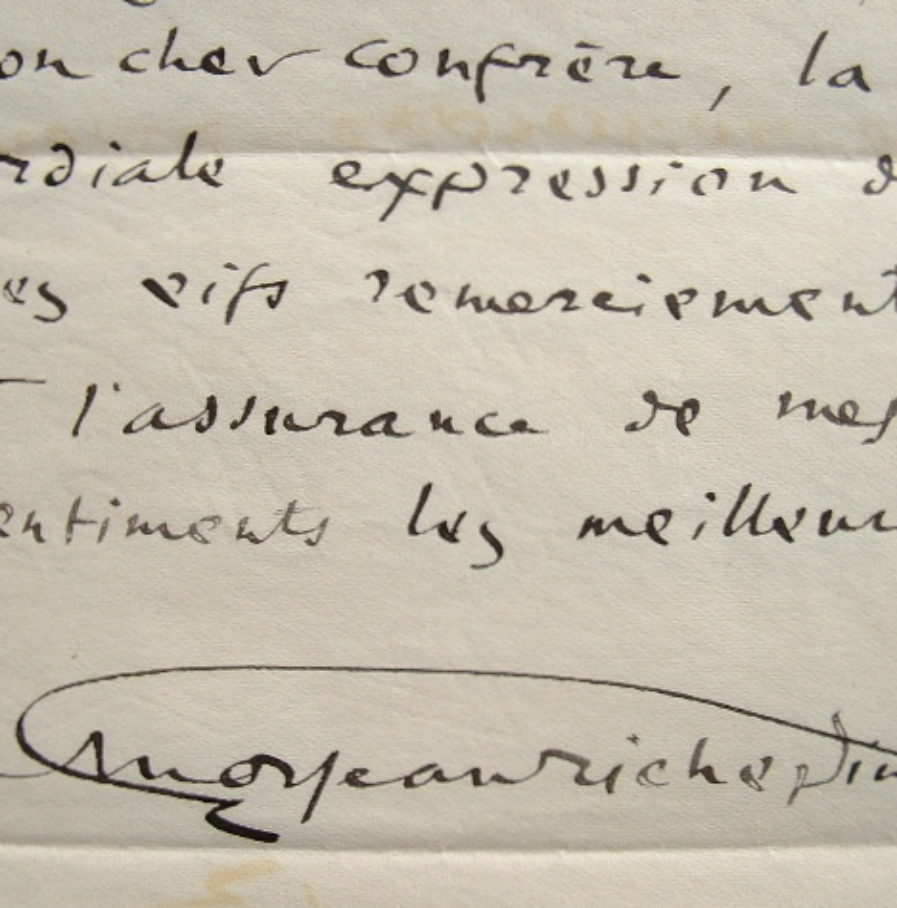 on cher confrère, la
rdiale expression d
es vifs remerciement
l'assurance de mes
entiments les meilleur
jeanrichepin